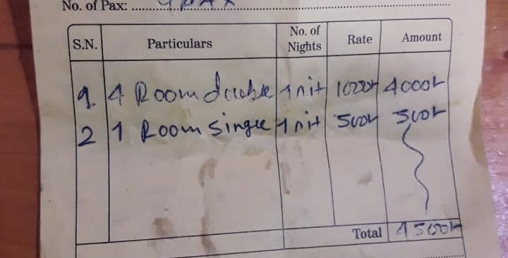 No. of Pax: 9 PAX
S.N. Particulars No. of Nights Rate Amount
1. 4 Room double 1 nit 1000/- 4000/-
2 1 Room single 1 nit 500/- 500/-
Total 4500/-